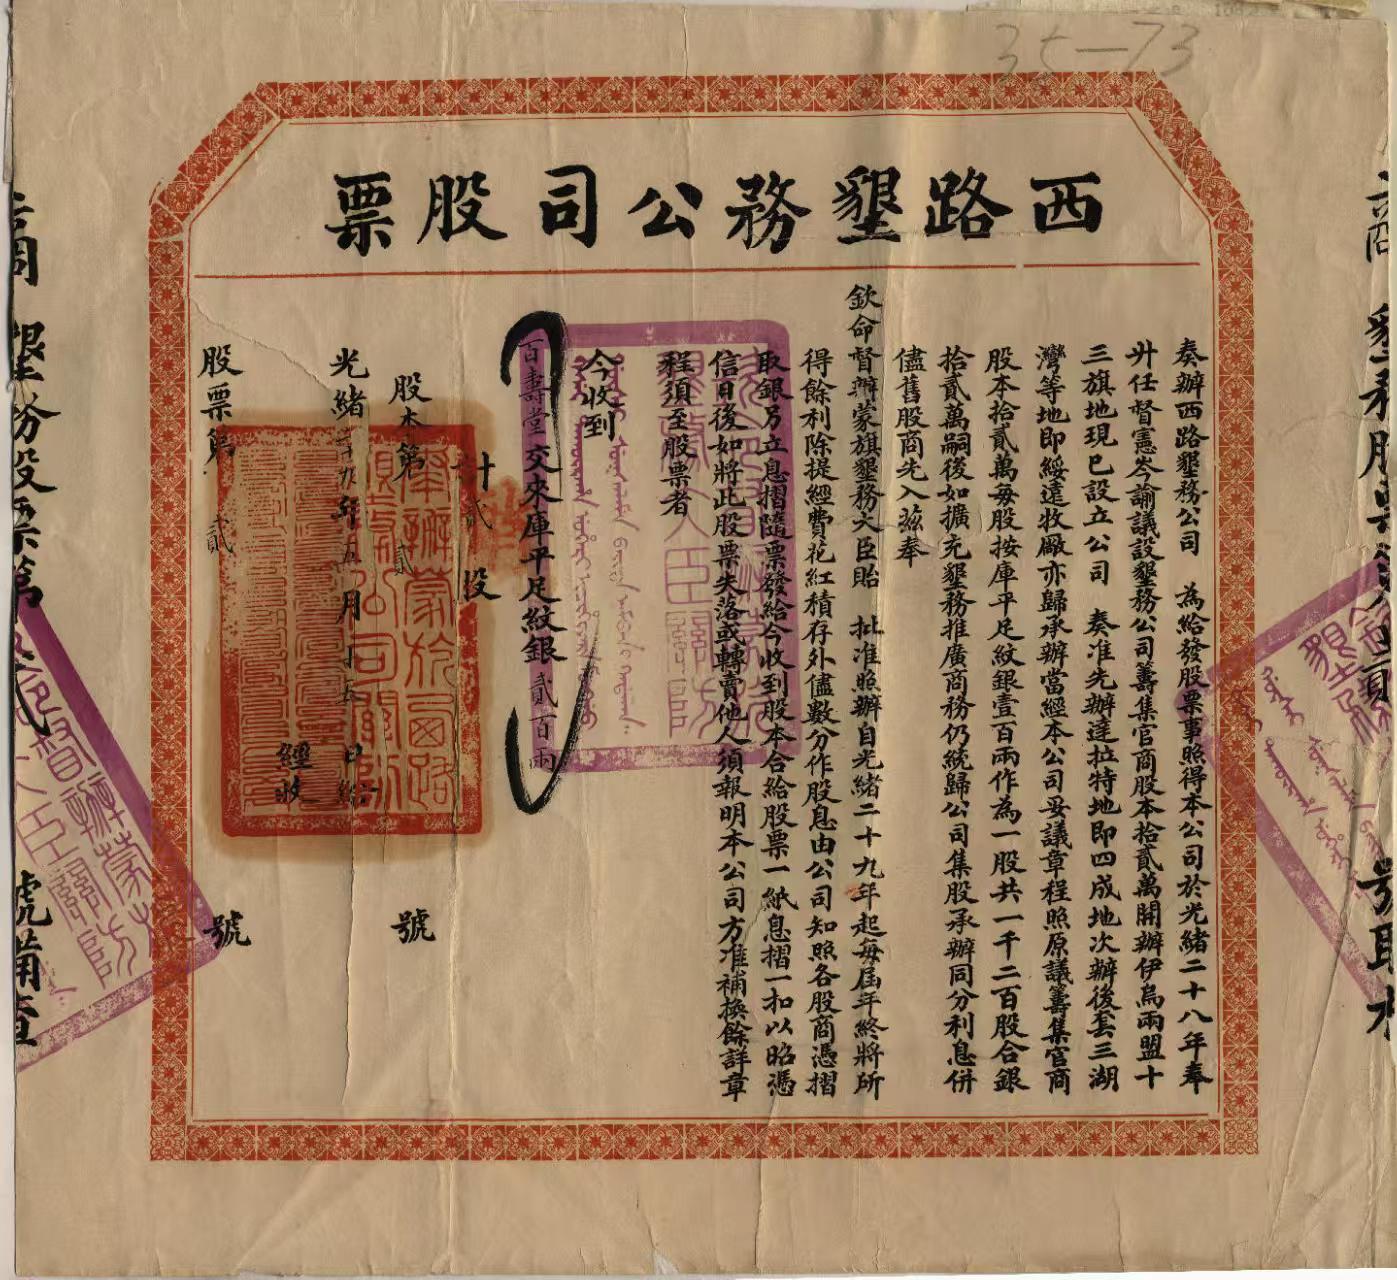 35-73
西路墾務公司股票
奏辦西路墾務公司 為給發股票事照得本公司於光緒二十八年奉
升任督憲岑諭議設墾務公司籌集官商股本拾貳萬開辦伊烏兩盟十
三旗地現已設立公司 奏准先辦達拉特地即四成地次辦後套三湖
灣等地即綏遠牧廠亦歸承辦當經本公司妥議章程照原議籌集官商
股本拾貳萬每股按庫平足紋銀壹百兩作為一股共一千二百股合銀
拾貳萬嗣後如擴充墾務推廣商務仍統歸公司集股承辦同分利息併
儘舊股商先入茲奉
欽命督辦蒙旗墾務大臣貽 批准照辦自光緒二十九年起每屆年終將所
得餘利除提經費花紅積存外儘數分作股息由公司知照各股商憑摺
取銀另立息摺隨票發給今收到股本合給股票一紙息摺一扣以昭憑
信日後如將此股票失落或轉賣他人須報明本公司方准補換餘詳章
程須至股票者
今收到
百壽堂交來庫平足紋銀貳百兩
計貳股
股本第貳號
光緒廿九年五月十五日給
經收
股票第貳號
墾務股票第貳號備查